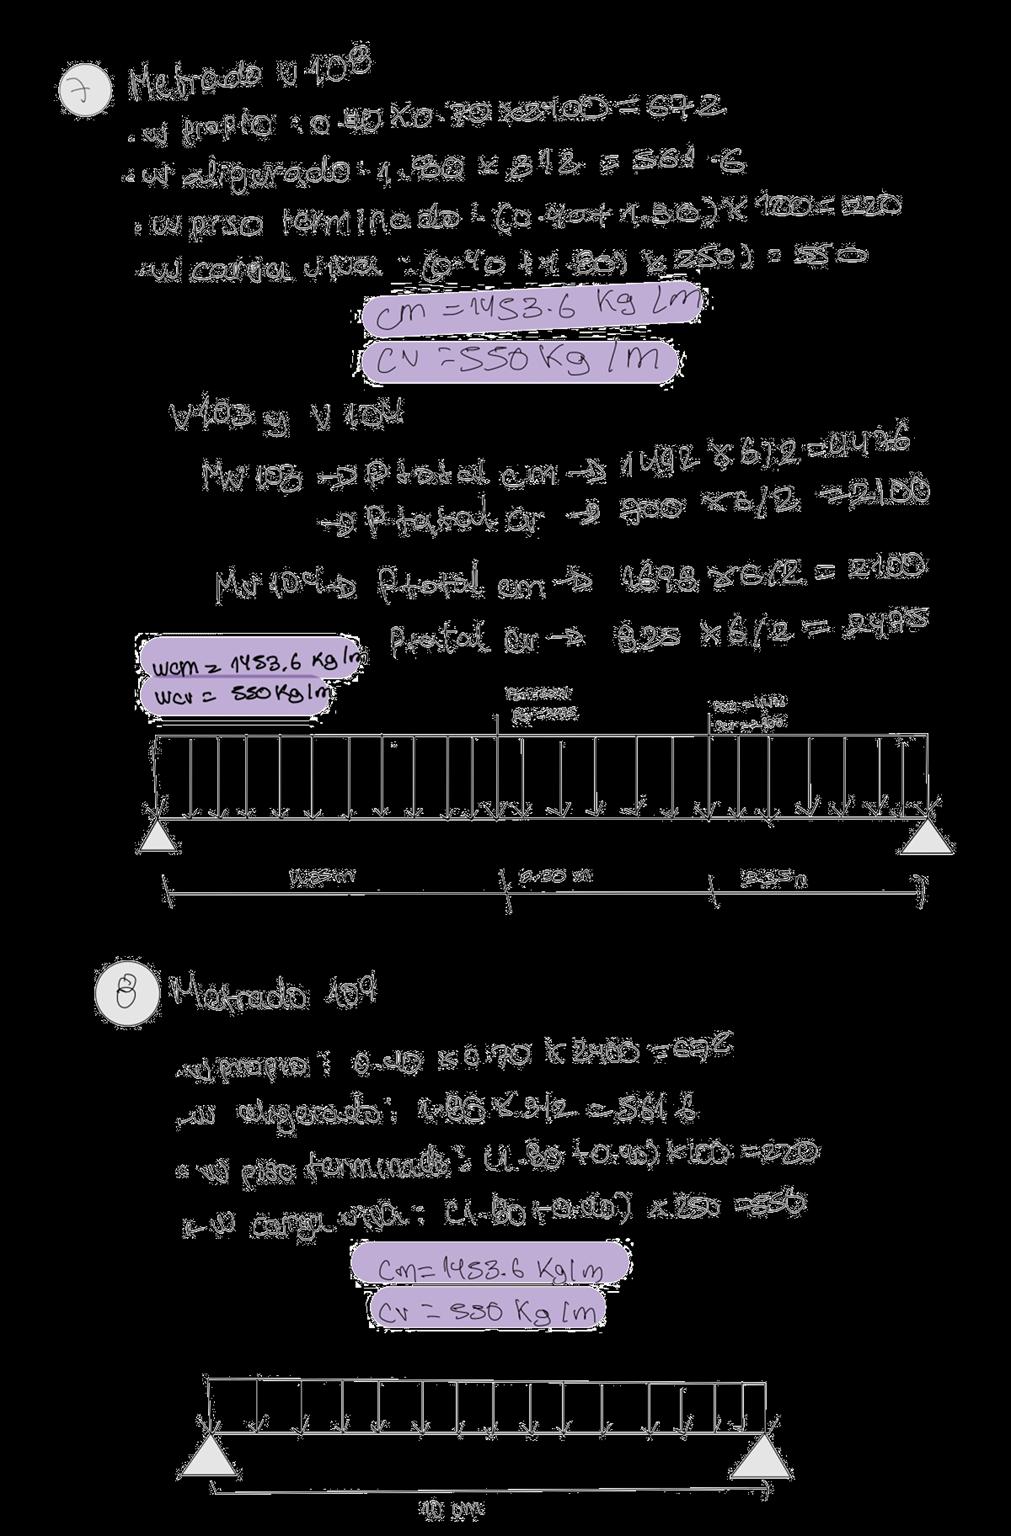 7 Metrado V 108
. w propio : 0.40 x 0.70 x 2400 = 672
. w aligerado : 1.80 x 312 = 561.6
. w piso terminado : (0.40 + 1.80) x 100 = 220
. w carga viva : (0.40 + 1.80) x 250) = 550
cm = 1453.6 Kg/m
cv = 550 Kg/m
V 103 y V 104
Mv 103 → P total cm → 1492 x 6/2 = 4476
→ P total cv → 700 x 6/2 = 2100
Mv 104 → P total cm → x 6/2 = 2100
P total cv → 825 x 6/2 = 2475
wcm = 1453.6 Kg/m
wcv = 550 Kg/m
8 Metrado 109
. w propio : 0.40 x 0.70 x 2400 = 672
. w aligerado : x 312 = 561.6
. w piso terminado : (1.80 + 0.40) x 100 = 220
. w carga viva : (1.80 + 0.40) x 250 = 550
cm = 1453.6 Kg/m
cv = 550 Kg/m